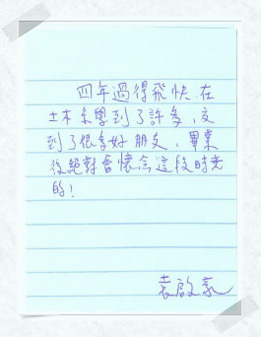 四年過得飛快,在
土木系學到了許多,交
到了很多好朋友,畢業
後絕對會懷念這段時光
的!
袁啟